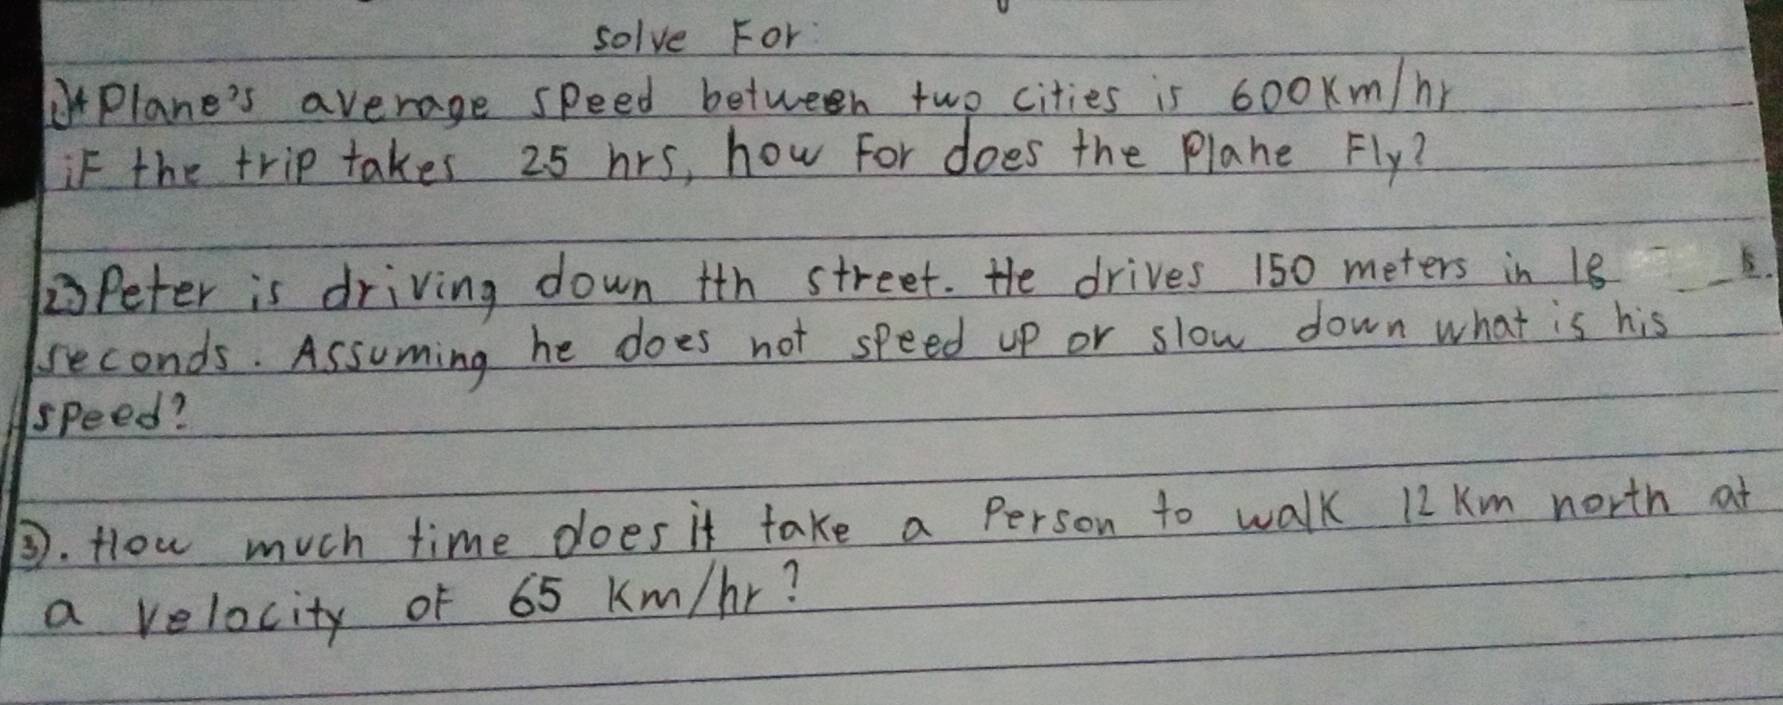 solve For:
1) A Plane's average speed between two cities is 600 Km/hr
if the trip takes 2.5 hrs, how For does the Plane Fly?
2) Peter is driving down tth street. He drives 150 meters in 18 s.
seconds. Assuming he does not speed up or slow down what is his
speed?
3). How much time does it take a Person to walk 12 Km north at
a velocity of 65 Km/hr?